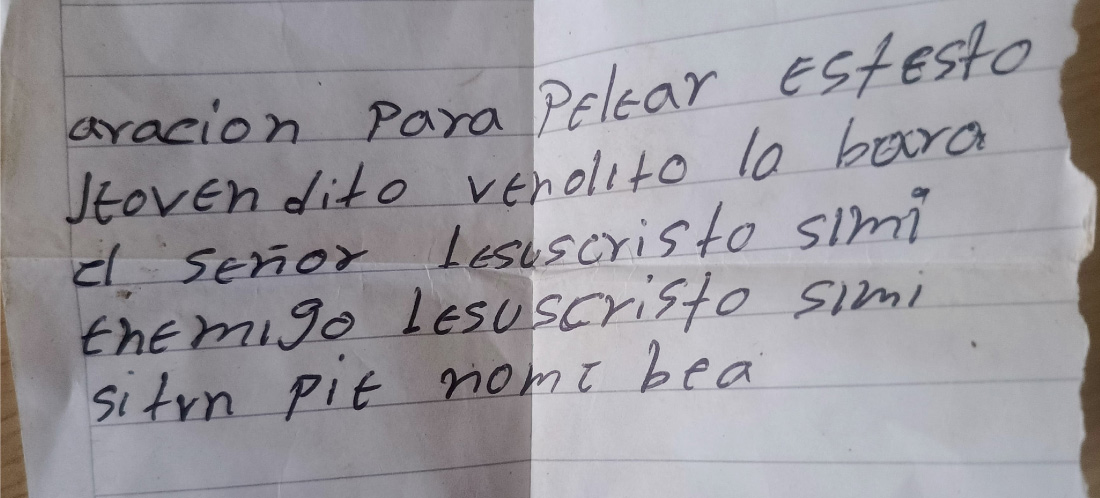 aracion para Pelear Estesto
Jtovendito vendito la bara
el señor Lesuscristo simi
enemigo Lesuscristo simi
sitvn pit nome bea